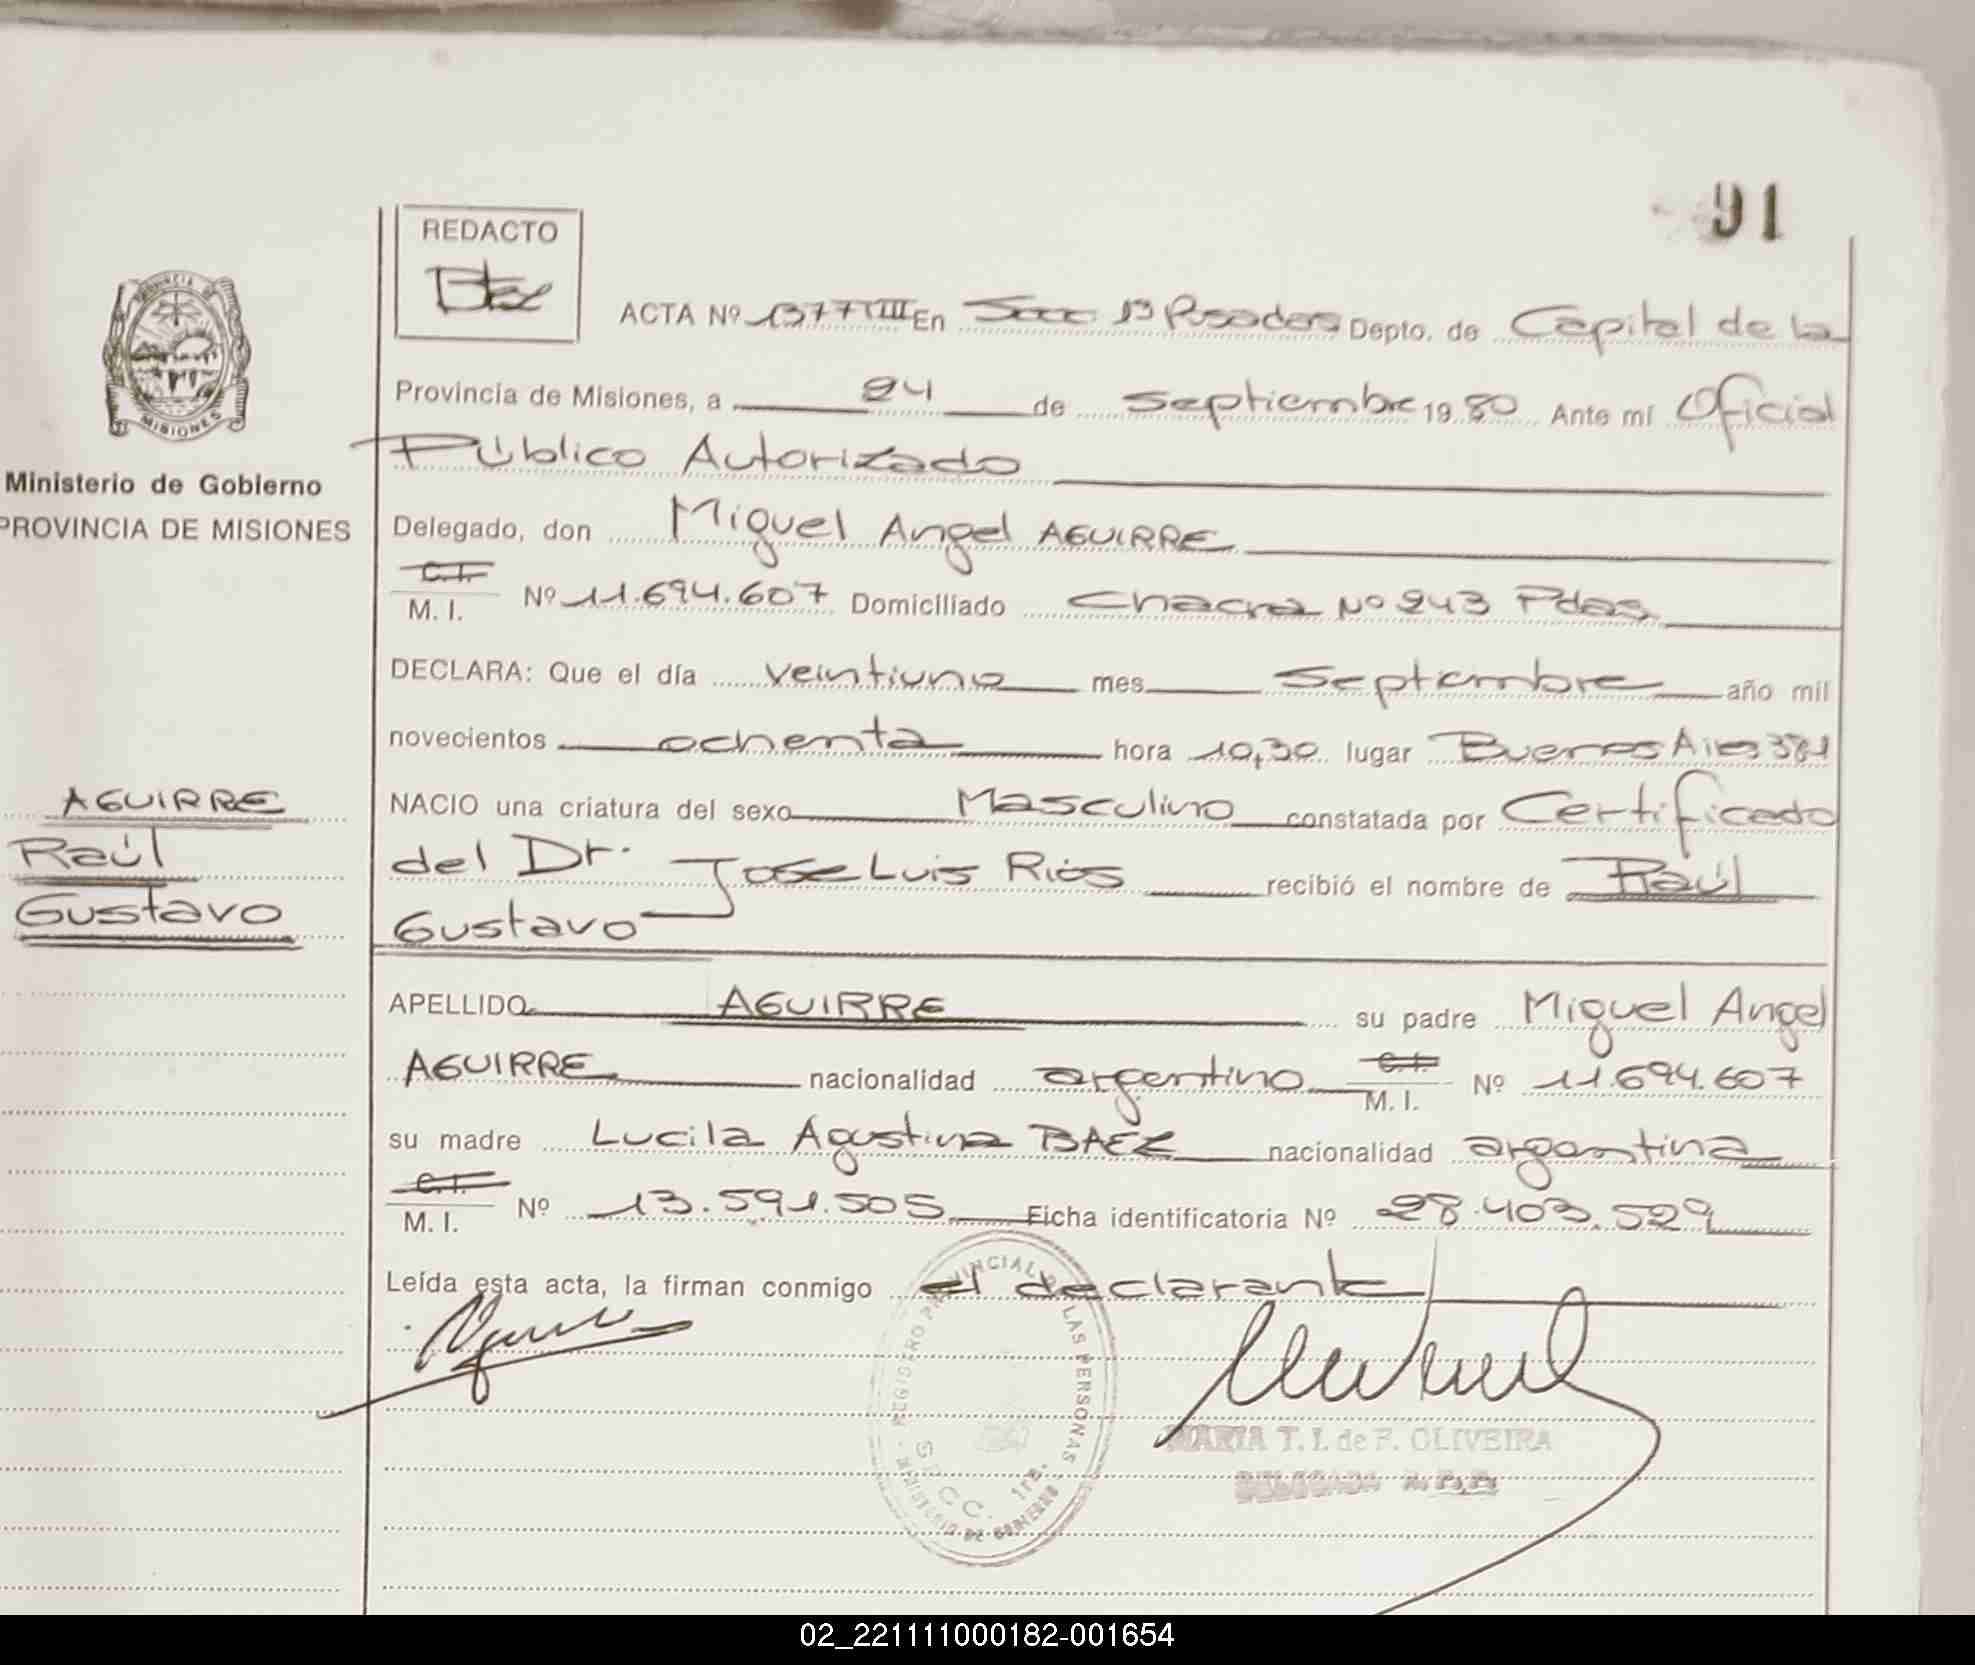 91
REDACTO
ACTA Nº 1377 TIII En Secc. 1ª Posadas Depto. de Capital de la
Provincia de Misiones, a 24 de Septiembre 1980 Ante mí Oficial
Público Autorizado
Ministerio de Gobierno
PROVINCIA DE MISIONES
Delegado, don Miguel Angel AGUIRRE
C.I.
M. I. Nº 11.694.607 Domiciliado Chacra Nº 243 Pdas
DECLARA: Que el día veintiuno mes Septiembre año mil
novecientos ochenta hora 10,30 lugar Buenos Aires 381
AGUIRRE
Raúl
Gustavo
NACIO una criatura del sexo Masculino constatada por Certificado
del Dr. Jose Luis Rios recibió el nombre de Raúl
Gustavo
APELLIDO AGUIRRE su padre Miguel Angel
AGUIRRE nacionalidad argentino C.I. M. I. Nº 11.694.607
su madre Lucila Agustina BAEZ nacionalidad argentina
C.I.
M. I. Nº 13.591.505 Ficha identificatoria Nº 28.403.529
Leída esta acta, la firman conmigo el declarante
REGISTRO PROVINCIAL DE LAS PERSONAS
SECC. 1ra.
MINISTERIO DE GOBIERNO
MARIA T. I. de F. OLIVEIRA
DELEGADA R. P. P.
PROVINCIA DE
MISIONES
02_221111000182-001654